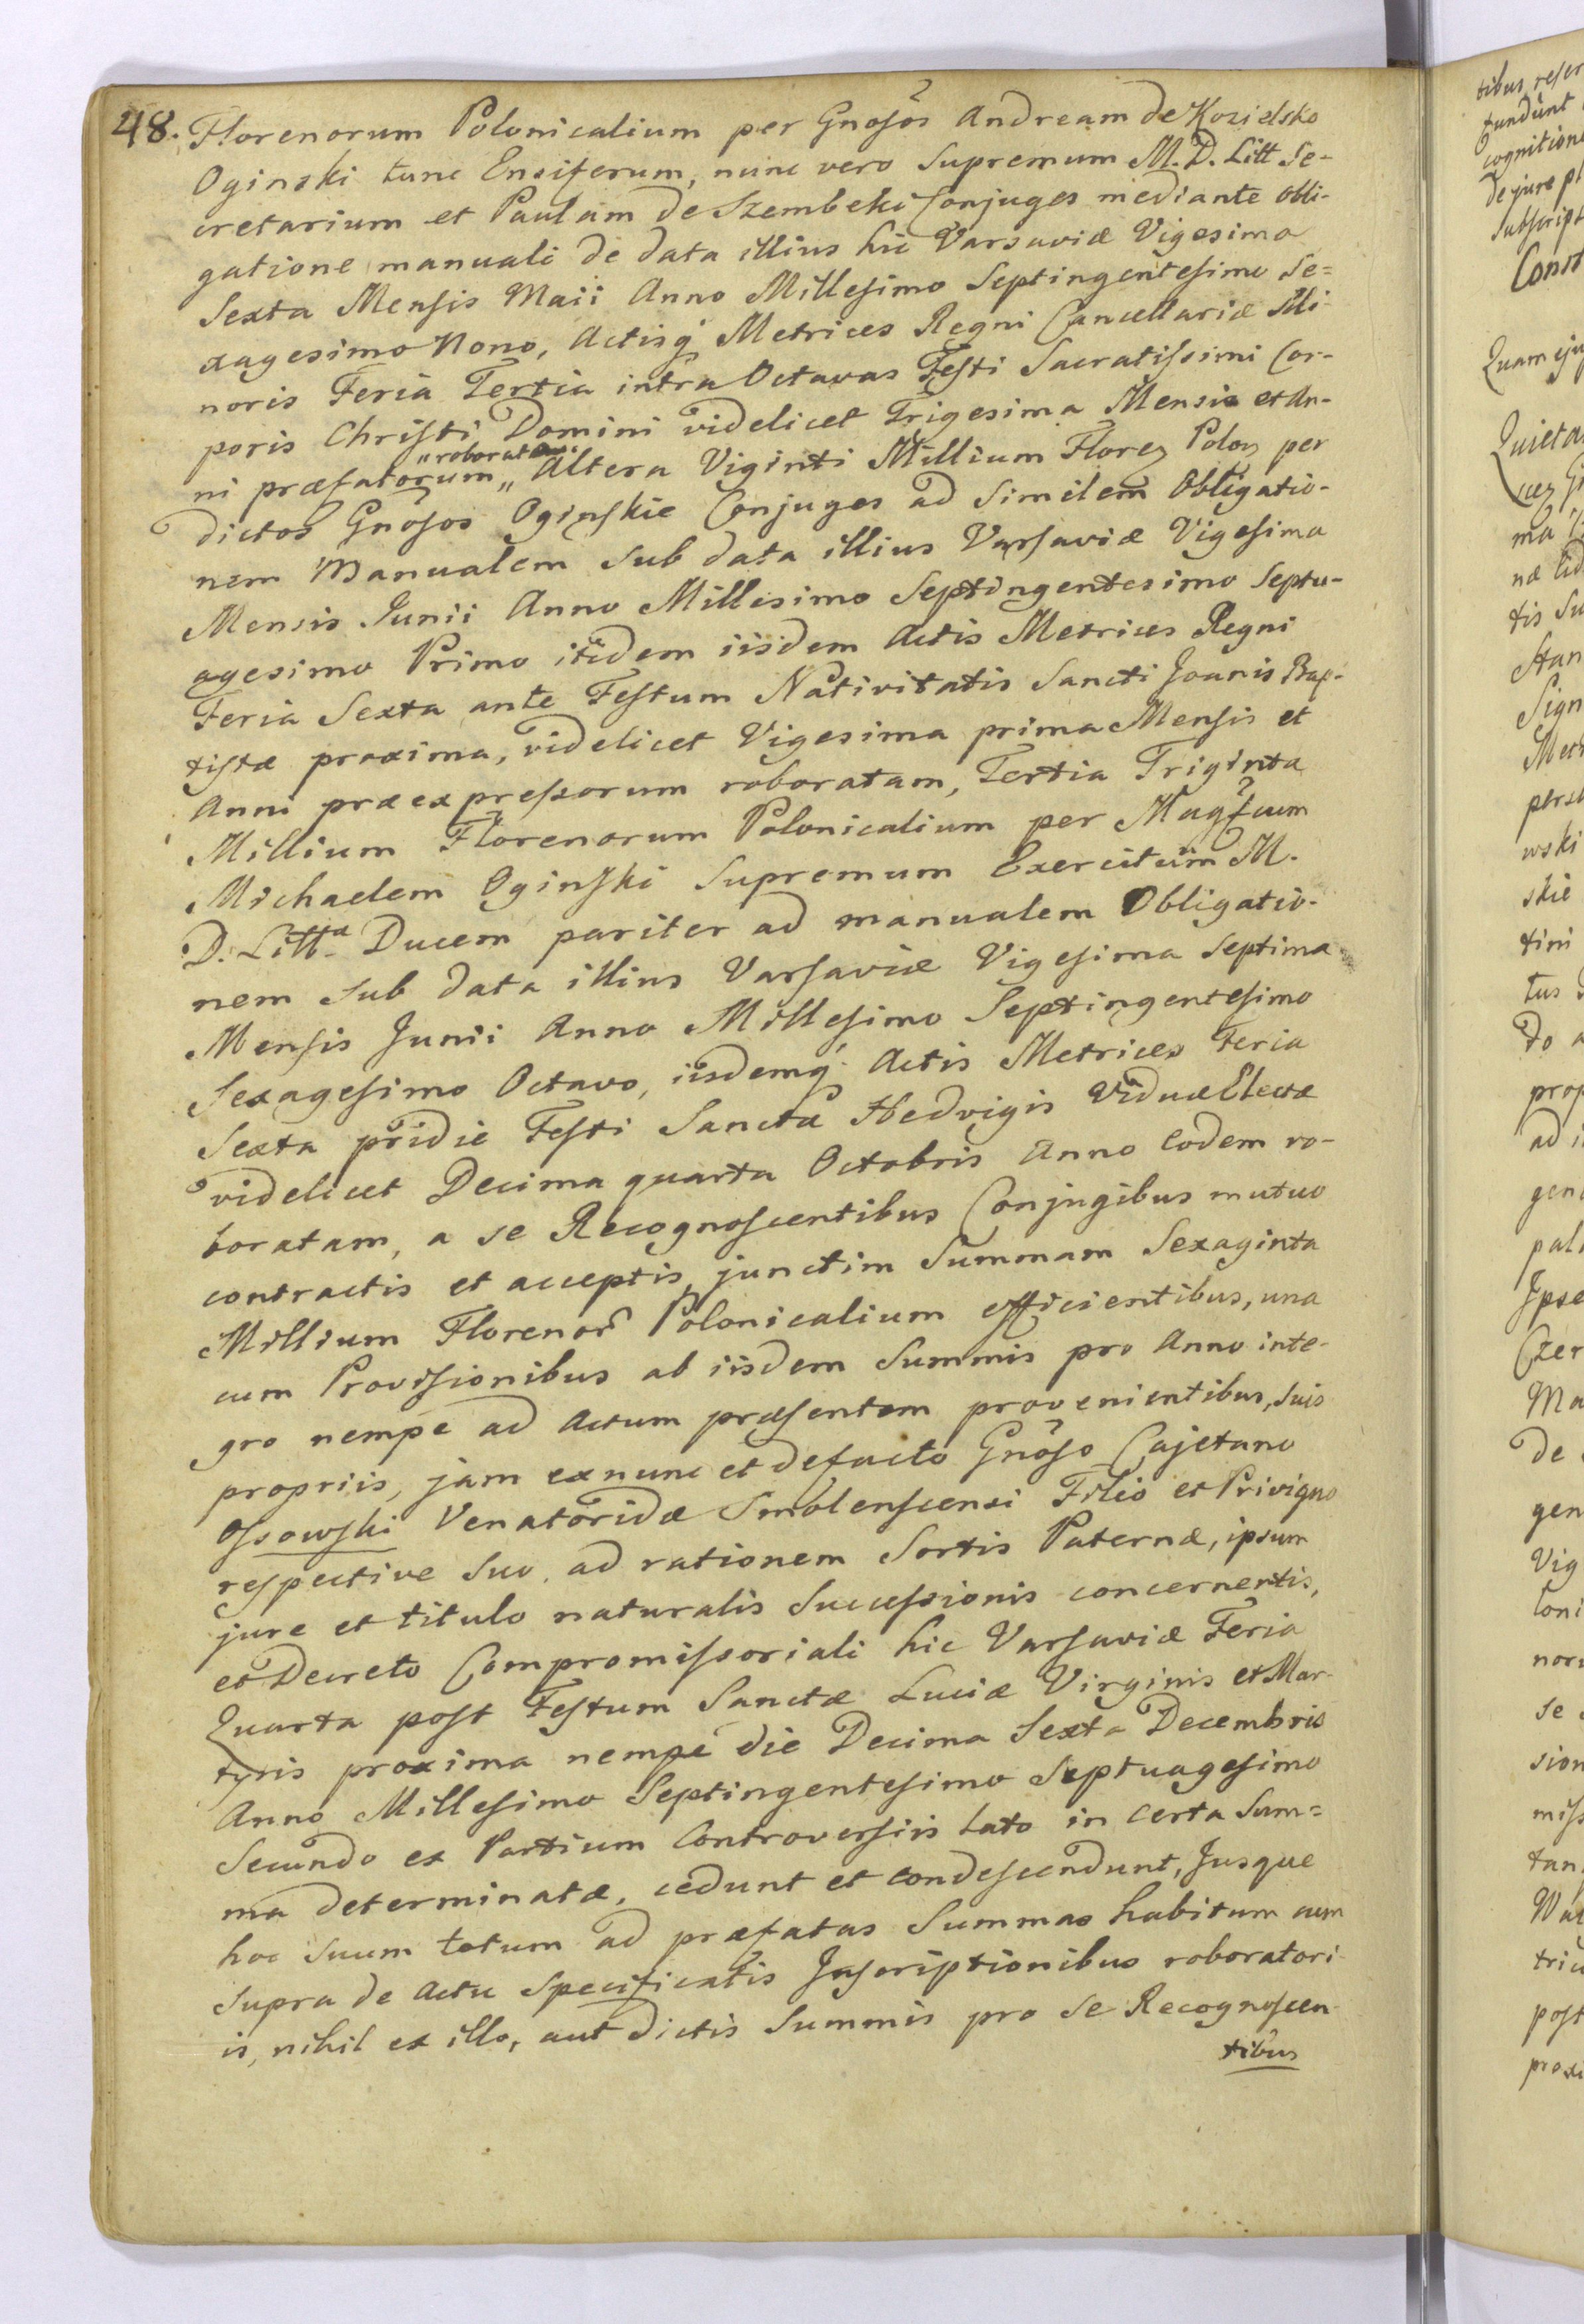 48. Florenorum Polonicalium per Gnosos Andream de Kozielsko
Oginski tunc Ensiferum, nunc vero Supremum M. D. Litt Se-
cretarium et Paulam de Szembeki Conjuges mediante Obli-
gatione manuali de data illius hic Varsaviæ Vigesima
Sexta Mensis Maii Anno Millesimo Septingentesimo Se=
xagesimo Nono, Actisq Metrices Regni Cancellariæ Mi
noris Feria Tertia intra Octavas Festi Sacratissimi Cor-
poris Christi Domini videlicet Trigesima Mensis et An-
ni præfatorum „roboratam„ Altera Viginti Millium Florez Poloz per
dictos Gnosos Oginskie Conjuges ad Similem Obligatio-
nem Manualem Sub data illius Varsaviæ Vigesima
Mensis Junii Anno Millesimo Septingentesimo Septu-
agesimo Primo itidem iisdem Actis Metrices Regni
Feria Sexta ante Festum Nativitatis Sancti Joanis Bap-
tistæ proxima, videlicet Vigesima prima Mensis et
Anni præexpressorum roboratam, Tertia Triginta
Millium Florenorum Polonicalium per Magfcum
Michaelem Oginski Supremum Exercituum M.
D. Litta Ducem pariter ad manualem Obligatio-
nem Sub data illius Varsaviæ Vigesima Septima
Mensis Junii Anno Millesimo Septingentesimo
Sexagesimo Octavo, iisdemq Actis Metrices Feria
Sexta pridie Festi Sanctæ Hedvigis Viduæ Electæ
videlicet Decima quarta Octobris Anno Eodem ro-
boratam, a se Recognoscentibus Conjugibus mutuo
contractis et acceptis, junctim Summam Sexaginta
Millium Florenor Polonicalium efficientibus, una
cum Provisionibus ab iisdem Summis pro Anno inte-
gro nempe ad Actum præsentem provenientibus, Suis
propriis, jam exnunc et defacto Gnoso Cajetano
Ossowski Venatoridæ Smolenscensi Filio et Privigno
respective Suo, ad rationem Sortis Paternæ, ipsum
jure et titulo naturalis Successionis concernentis,
et Decreto Compromissoriali hic Varsaviæ Feria
Quarta post Festum Sanctæ Luciæ Virginis et Mar-
tyris proxima nempe die Decima Sexta Decembris
Anno Millesimo Septingentesimo Septuagesimo
Secundo ex Partium Controversiis lato in certa Sum=
ma determinatæ, cedunt et condescendunt, Jusque
hoc Suum totum ad præfatas Summas habitum cum
supra de Actu Specificatis Inscriptionibus roboratori
is, nihil ex illo, aut dictis Summis pro Se Recognoscen
tibus